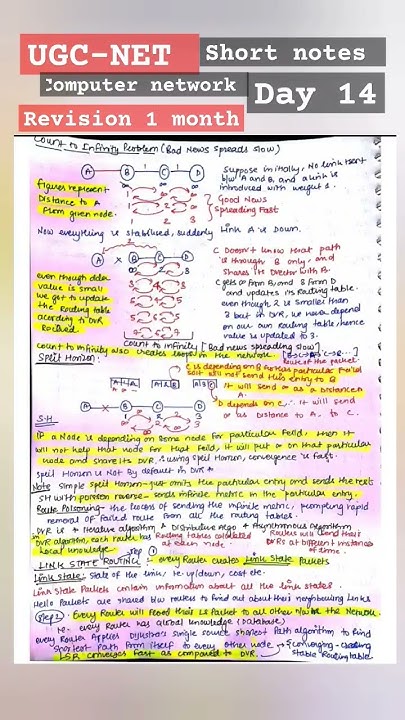 UGC-NET
Short notes
Computer network
Day 14
Revision 1 month
Count to Infinity Problem (Bad News Spreads Slow)
A B 1 C 1 D
∞ ∞ ∞
Suppose initially, No link
b/w A and B, and a link is
introduced with weight 1.
figures represent
Distance to A
from given node.
Good News
Spreading Fast
1 2 3
Now everything is stabilised, suddenly Link A is Down.
A X B C D
C Doesn't know that path
is through B only, and
shares its Vector with B.
C gets 0 from B, and 3 from D
and updates its routing table.
even though 2 is smaller
than 3 but in DVR, we have depend
on our own routing table, hence
value is updated to 3.
even though older
value is small
we got to update
the Routing table
according to DVR
Received.
Count to Infinity [Bad news spreading slow]
count to infinity also creates loops in the network.
Route of the packet
Split Horizon:
C is depending on B for this particular field
so it will not send this entry to B
It will send ∞ as a distance
A.
D depends on C, ∴ it will send
∞ as distance to A, to C.
A B C D
S.H
If a Node is depending on some node for particular field, then it
will not help that node for that feild, it will put ∞ on that particular
node and share its DVR, ∴ using Spilt Horizon, convergence is fast.
Spilt Horizon is Not By default in DVR
Note Simple Spilt Horizon - just omits the particular entry and sends the rest
SH with poison reverse - sends infinite metric in the particular entry.
Route Poisoning - the process of sending the infinite metric, prompting rapid
removal of failed route from all the routing tables.
DVR is + Iterative algorithm + Distributive Algo + Asynchronous Algorithm
in DVR algorithm, each router has Routing tables calculated
at each node.
Routers will send their
DVRs at different instances
of time.
Local knowledge
Step 1
LINK STATE ROUTING :- every Router creates Link State Packets
Link State: State of the link, ie. up/down, cost etc.
Link State Packets contain information about all the link states.
Hello Packets are shared b/w routers to find out about their neighbouring Links
Step 2 Every Router will flood their LS Packet to all other in the Network
ie. every Router has global knowledge (Database)
every Router Applies Dijkstra's Single source shortest Path algorithm to find
shortest path from itself to every other node
LSR converges Fast as compared to DVR.
converging - creating
stable Routing table